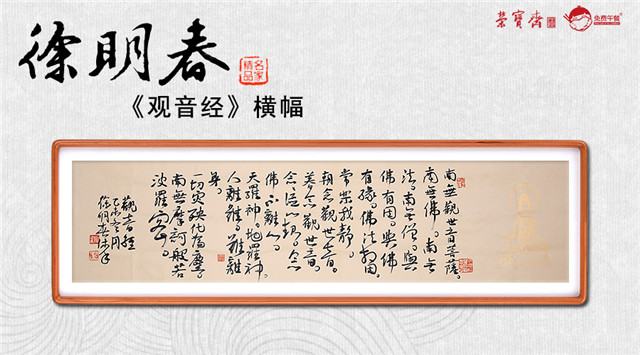 徐明春
名家
精品
《观音经》横幅
榮寶齋
免费午餐
南無觀世音菩薩。
南無佛。南無
法。南無僧。與
佛有因。與佛
有緣。佛法相因。
常樂我靜。
朝念觀世音。
暮念觀世音。
念念從心起。念
佛不離心。
天羅神。地羅神。
人離難。難離
身。
一切災殃化為塵。
南無摩訶般若
波羅密。
觀音經
徐明春